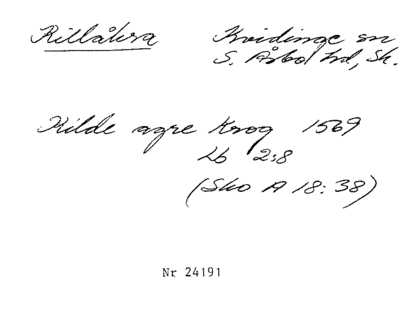 Killåkra Kvidinge sn
S. Åsbo hd, Sk.
Kilde agre Krog 1569
Lb 2:8
(Sko A 18: 38)
Nr 24191